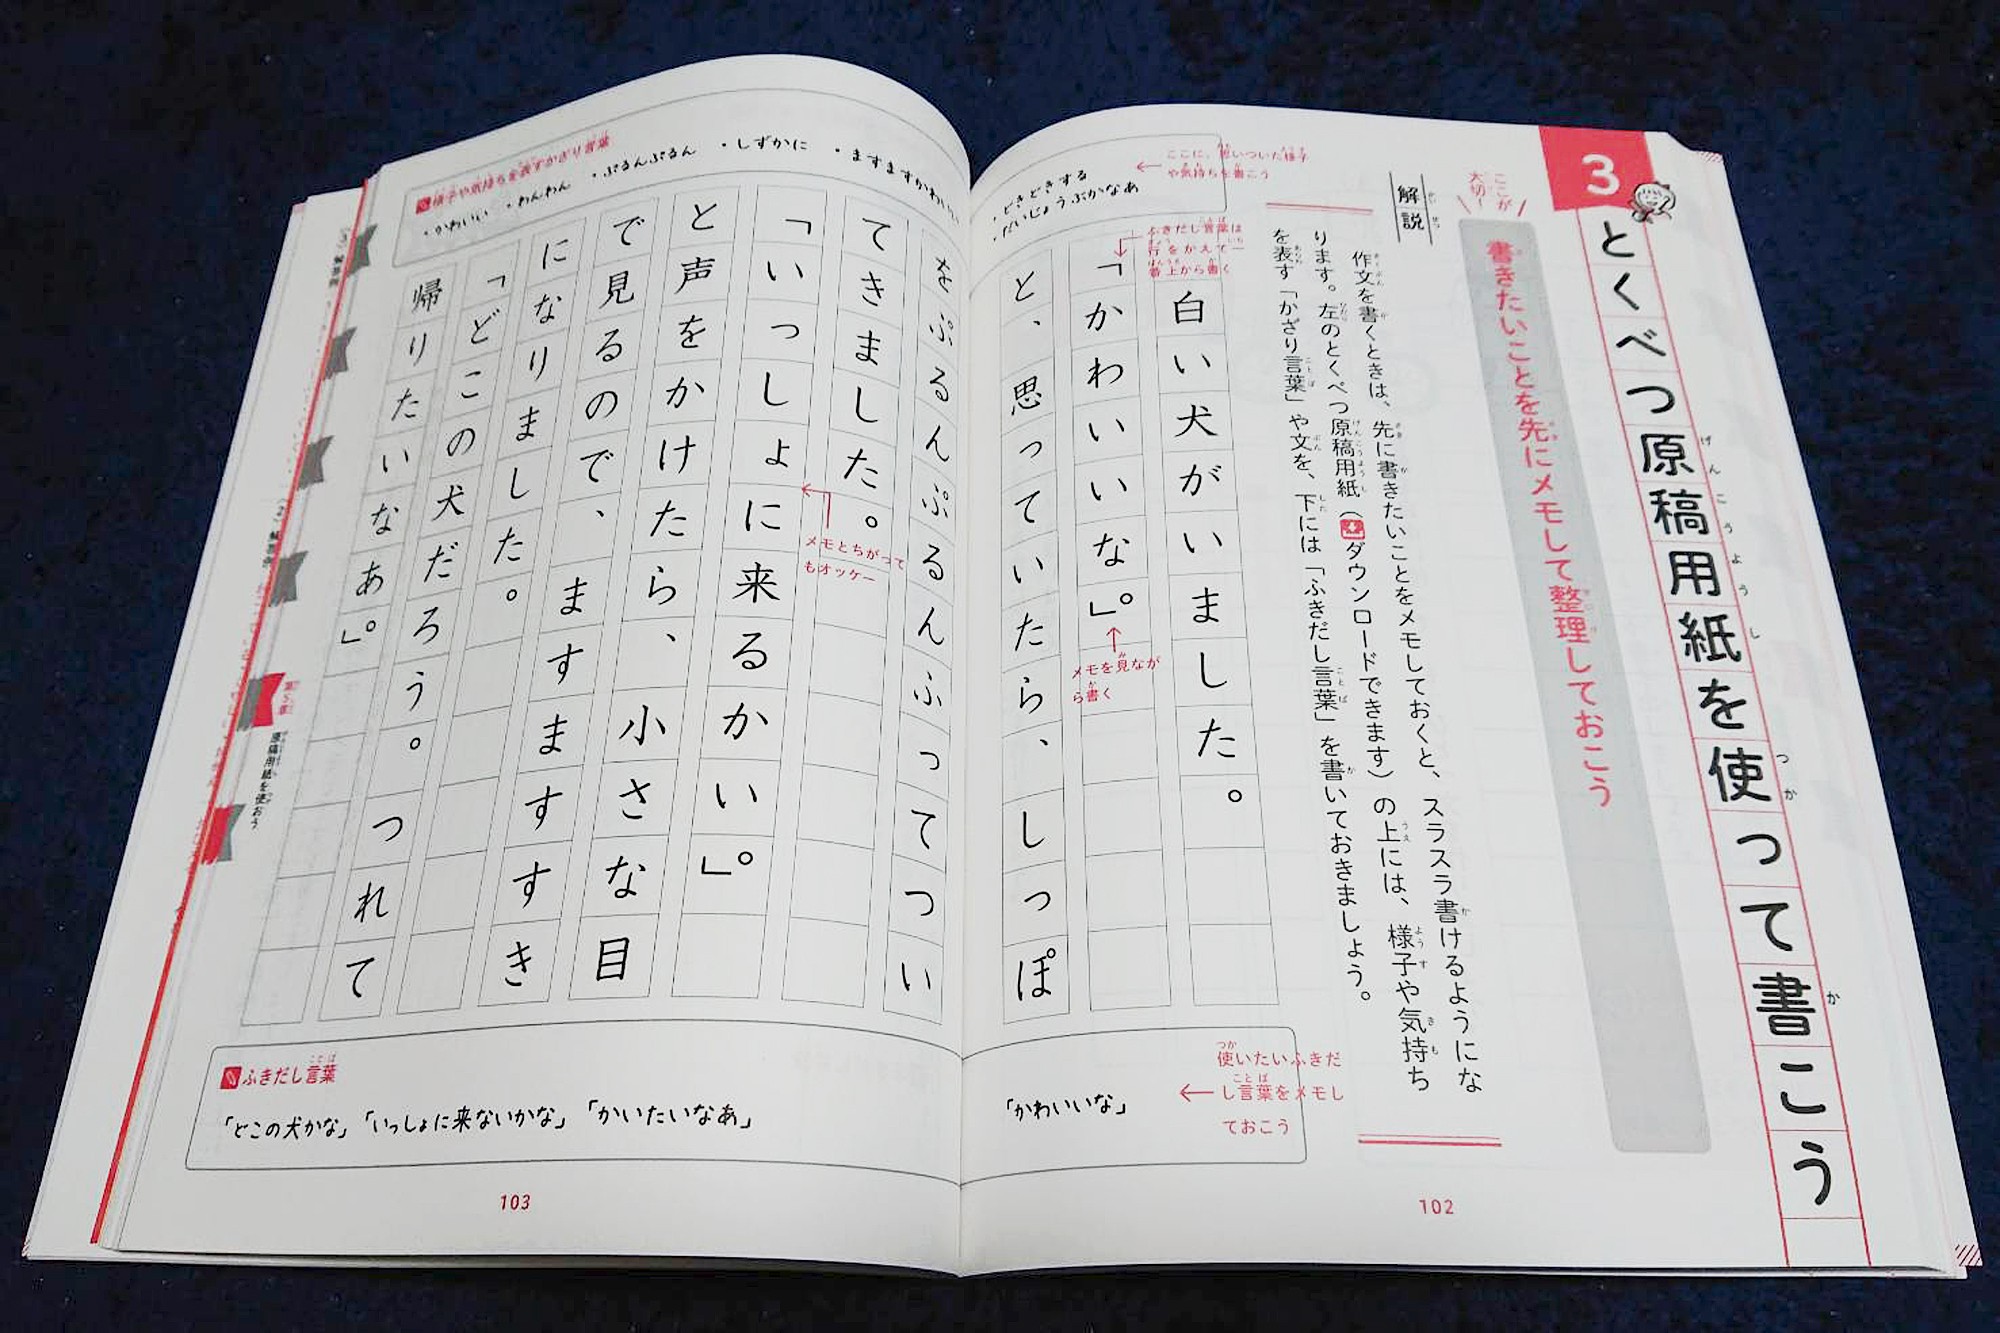 3
とくべつ原稿用紙を使って書こう
ここが
大切!
書きたいことを先にメモして整理しておこう
解説
作文を書くときは、先に書きたいことをメモしておくと、スラスラ書けるようにな
ります。左のとくべつ原稿用紙(ダウンロードできます)の上には、様子や気持ち
を表す「かざり言葉」や文を、下には「ふきだし言葉」を書いておきましょう。
ここに、思いついた様子
や気持ちを書こう
・どきどきする
・だいじょうぶかなあ
ふきだし言葉は
行をかえて一
番上から書く
白い犬がいました。
「かわいいな。」
メモを見なが
ら書く
と、思っていたら、しっぽ
使いたいふきだ
し言葉をメモし
ておこう
「かわいいな」
102
様子や気持ちを表すかざり言葉
・かわいい ・わんわん ・ぷるんぷるん ・しずかに ・ますますかわいい
をぷるんぷるんふってつい
てきました。
メモとちがって
もオッケー
「いっしょに来るかい。」
と声をかけたら、小さな目
で見るので、ますますすき
になりました。
「どこの犬だろう。つれて
帰りたいなあ。」
ふきだし言葉
「どこの犬かな」「いっしょに来ないかな」「かいたいなあ」
第5章
原稿用紙を使おう
103